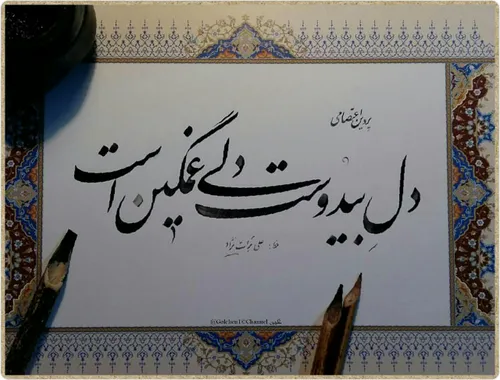 پروین اعتصامی
دلِ بیدوست دلی غمگین است
خط: علی
@Golchin1Channel گلچین